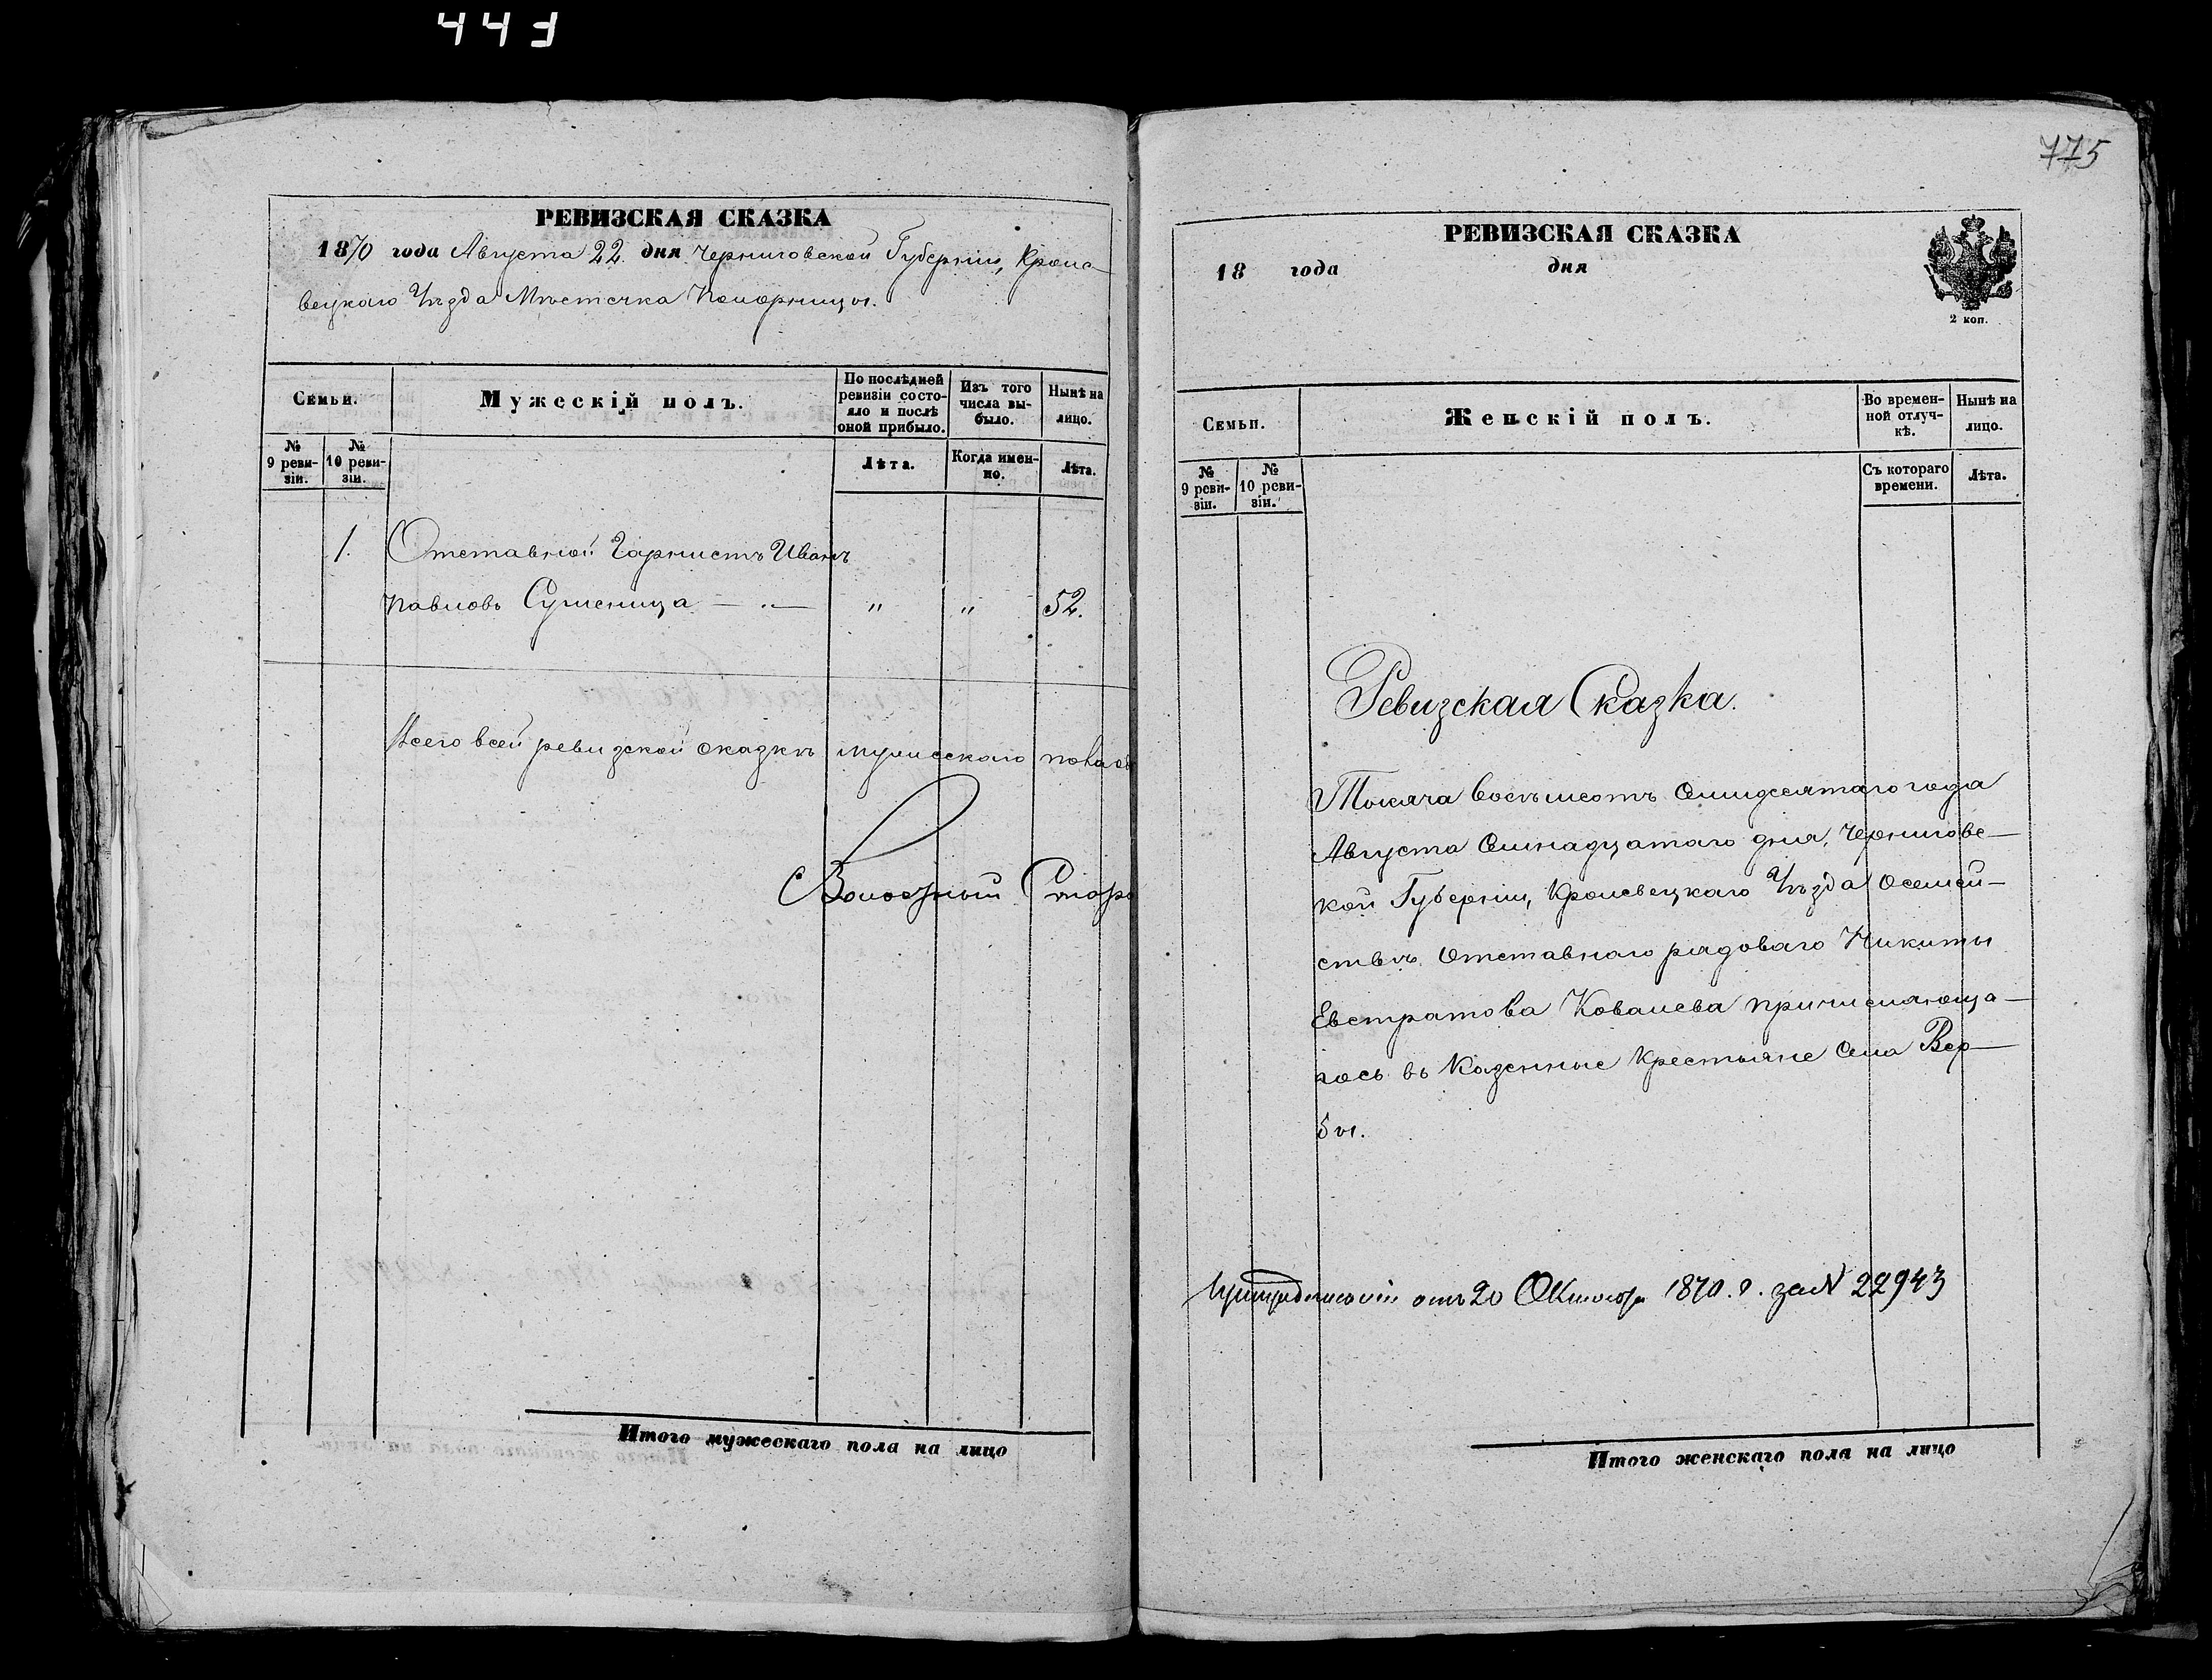 443
775
РЕВИЗСКАЯ СКАЗКА
1870 года Августа 22. дня Черниговской Губерніи, Кроле-
вецкаго Уѣзда Мѣстечка Понорницы.
Семьи.
Мужескій полъ.
По послѣдней
ревизіи состо-
яло и послѣ
оной прибыло.
Изъ того
числа вы-
было.
Нынѣ на
лицо.
№
9 реви-
зіи.
№
10 реви-
зіи.
Лѣта.
Когда имен-
но.
Лѣта.
1. Отставной Горнистъ Иванъ
Павловъ Сушеница — " — " " 52.
Всего всей ревизской сказкѣ мужескаго пола
Волостный Стар
Итого мужескаго пола на лицо
РЕВИЗСКАЯ СКАЗКА
18 года дня
2 коп.
Семьи.
Женскій полъ.
Во времен-
ной отлуч-
кѣ.
Нынѣ на
лицо.
№
9 реви-
зіи.
№
10 реви-
зіи.
Съ котораго
времени.
Лѣта.
Ревизская Сказка.
Тысяча Восѣмсотъ Семидесятаго года
Августа Семнадцатаго дня, Черниговс-
кой Губерніи, Кролевецкаго Уѣзда О семей-
ствѣ Отставнаго рядоваго Никиты
Евстратова Ковалева причисляюща-
гось въ Казенные Крестьяне Села Вер-
бы.
отъ 20 Октября 1870. г. за № 22943
Итого женскаго пола на лицо